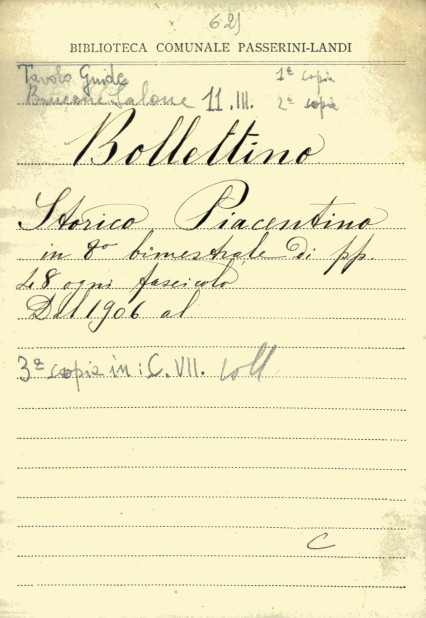 621
BIBLIOTECA COMUNALE PASSERINI-LANDI
Tavolo Guide 1ª copia
Salone 11.III. 2ª copia
Bollettino
Storico Piacentino
in 8º bimestrale di pp.
48 ogni fascicolo
Dal 1906 al
3ª copia in: C. VII. coll
C